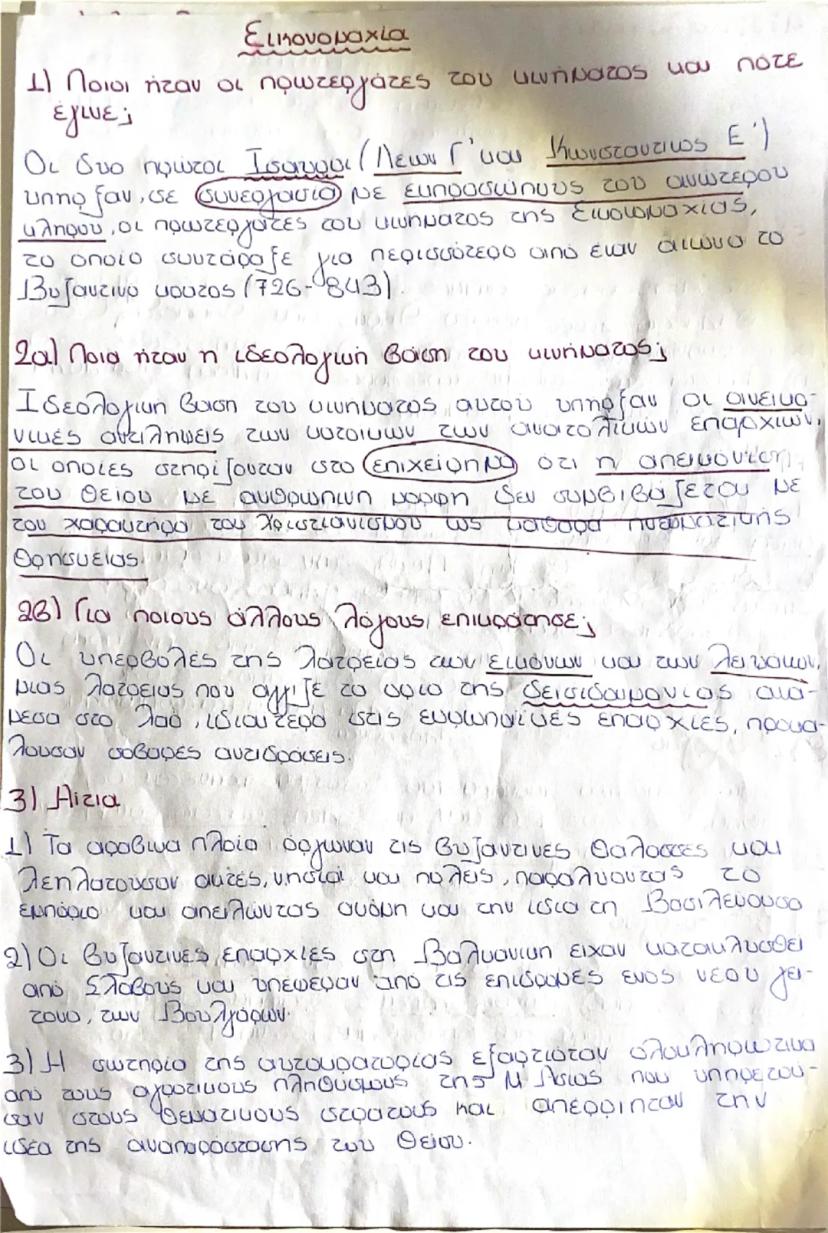 Εικονομαχία
1) Ποιοι ήταν οι πρωτεργάτες του κινήματος και πότε
έγινε;
Οι δυο πρώτοι Ισαυροι (Λεων Γ' και Κωνσταντινος Ε')
υπηρξαν, σε συνεργασια με εκπροσωπους του ανωτερου
κληρου, οι πρωτεργατες του κινηματος της Εικονομαχιας,
το οποίο συντάραξε για περισσότερο από έναν αιώνα το
Βυζαντινο κρατος (726-843).
2α) Ποια ήταν η ιδεολογική βάση του κινήματος;
Ιδεολογικη βαση του κινηματος αυτού υπηρξαν οι ανεικο-
νικές αντιληψεις των κατοικων των ανατολικών επαρχιών,
οι οποιες στηρίζονταν στο επιχειρημα ότι η απεικονιση
του θειου με ανθρωπινη μορφη δεν συμβιβάζεται με
τον χαρακτηρα του Χριστιανισμου ως καθαρα πνευματικης
θρησκειας.
2β) Για ποιους άλλους λόγους επικράτησε;
Οι υπερβολές της λατρειας των εικόνων και των λειψανων,
μιας λατρειας που αγγιζε το οριο της δεισιδαιμονιας ανα-
μεσα στο λαό, ιδιαιτερα στις ευρωπαϊκές επαρχιες, προκα-
λουσαν σοβαρες αντιδράσεις.
3) Αίτια
1) Τα αραβικα πλοία όργωναν τις βυζαντινες θαλασσες και
λεηλατουσαν ακτές, νησιά και πόλεις, παραλυοντας το
εμπόριο και απειλώντας ακόμη και την ιδια τη Βασιλεύουσα
2) Οι βυζαντινες επαρχιες στη Βαλκανικη ειχαν κατακλυσθει
από Σλάβους και υπεφεραν από τις επιδρομες ενος νεου γει-
τονα, των Βουλγάρων.
3) Η σωτηρια της αυτοκρατοριας εξαρτιόταν ολοκληρωτικα
από τους αγροτικους πληθυσμους της Μ. Ασιας που υπηρετου-
σαν στους θεματικους στρατους και απερριπταν την
ιδέα της αναπαράστασης του Θείου.